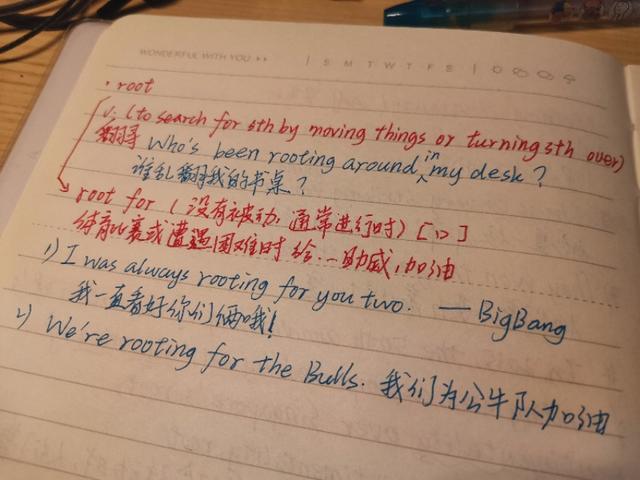 WONDERFUL WITH YOU ▸▸ | S M T W T F S |
· root
v. (to search for sth by moving things or turning sth over)
翻寻 Who's been rooting around in my desk?
谁乱翻我的书桌?
root for (没有被动,通常进行时) [口]
体育比赛或遭遇困难时给…助威,加油
1) I was always rooting for you two. — BigBang
我一直看好你们俩哦!
2) We're rooting for the Bulls. 我们为公牛队加油